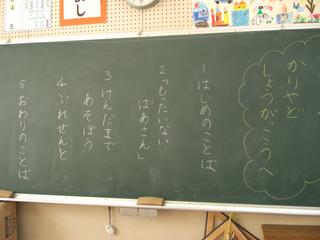 かりやど
しょうがっこうへ
1 はじめのことば
2 「もったいない
ばあさん」
3 けんだまで
あそぼう
4 ぷれぜんと
5 おわりのことば